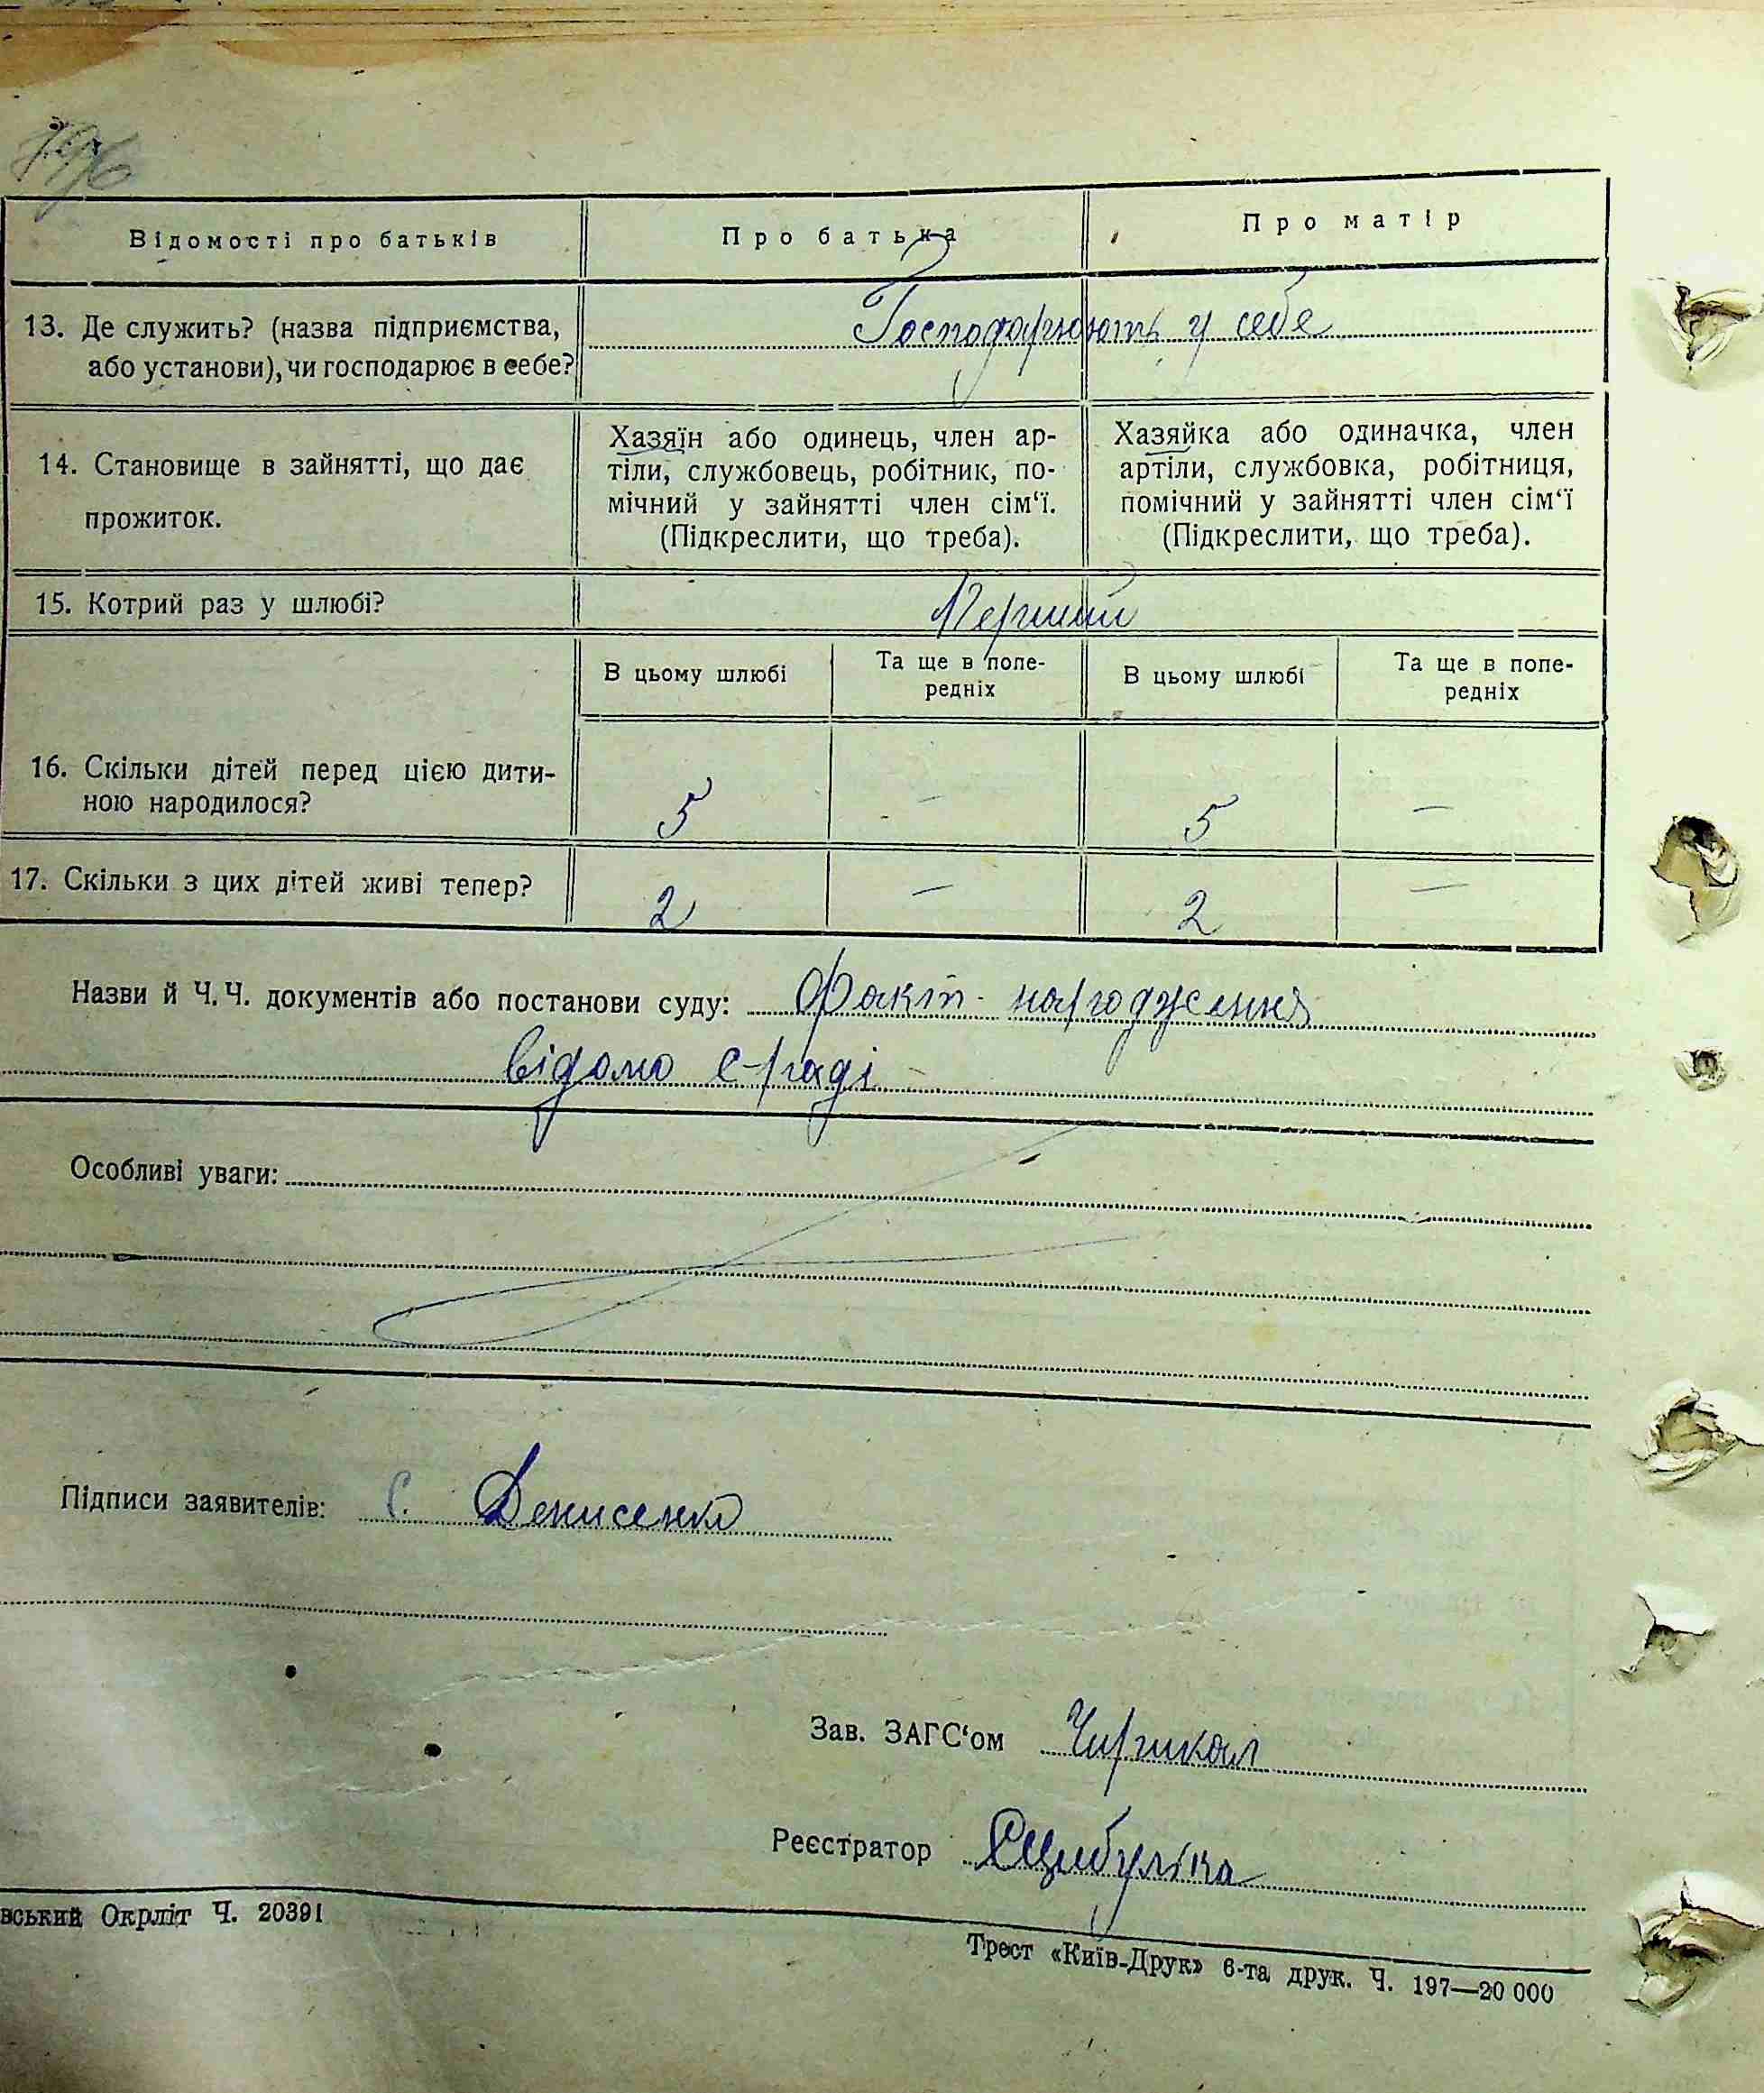 196
Відомості про батьків
Про батька
Про матір
13. Де служить? (назва підприємства,
або установи), чи господарює в себе?
Господарюють у себе
14. Становище в зайнятті, що дає
прожиток.
Хазяїн або одинець, член ар-
тіли, службовець, робітник, по-
мічний у зайнятті член сім‘ї.
(Підкреслити, що треба).
Хазяйка або одиначка, член
артіли, службовка, робітниця,
помічний у зайнятті член сім‘ї
(Підкреслити, що треба).
15. Котрий раз у шлюбі?
Перший
В цьому шлюбі
Та ще в попе-
редніх
В цьому шлюбі
Та ще в попе-
редніх
16. Скільки дітей перед цією дити-
ною народилося?
5 — 5 —
17. Скільки з цих дітей живі тепер?
2 — 2 —
Назви й Ч.Ч. документів або постанови суду: Факт народження
відомо с-раді
Особливі уваги:
Підписи заявителів: С. Денисенко
Зав. ЗАГС‘ом
Реєстратор
вський Окрліт Ч. 20391
Трест «Київ-Друк» 6-та друк. Ч. 197—20 000